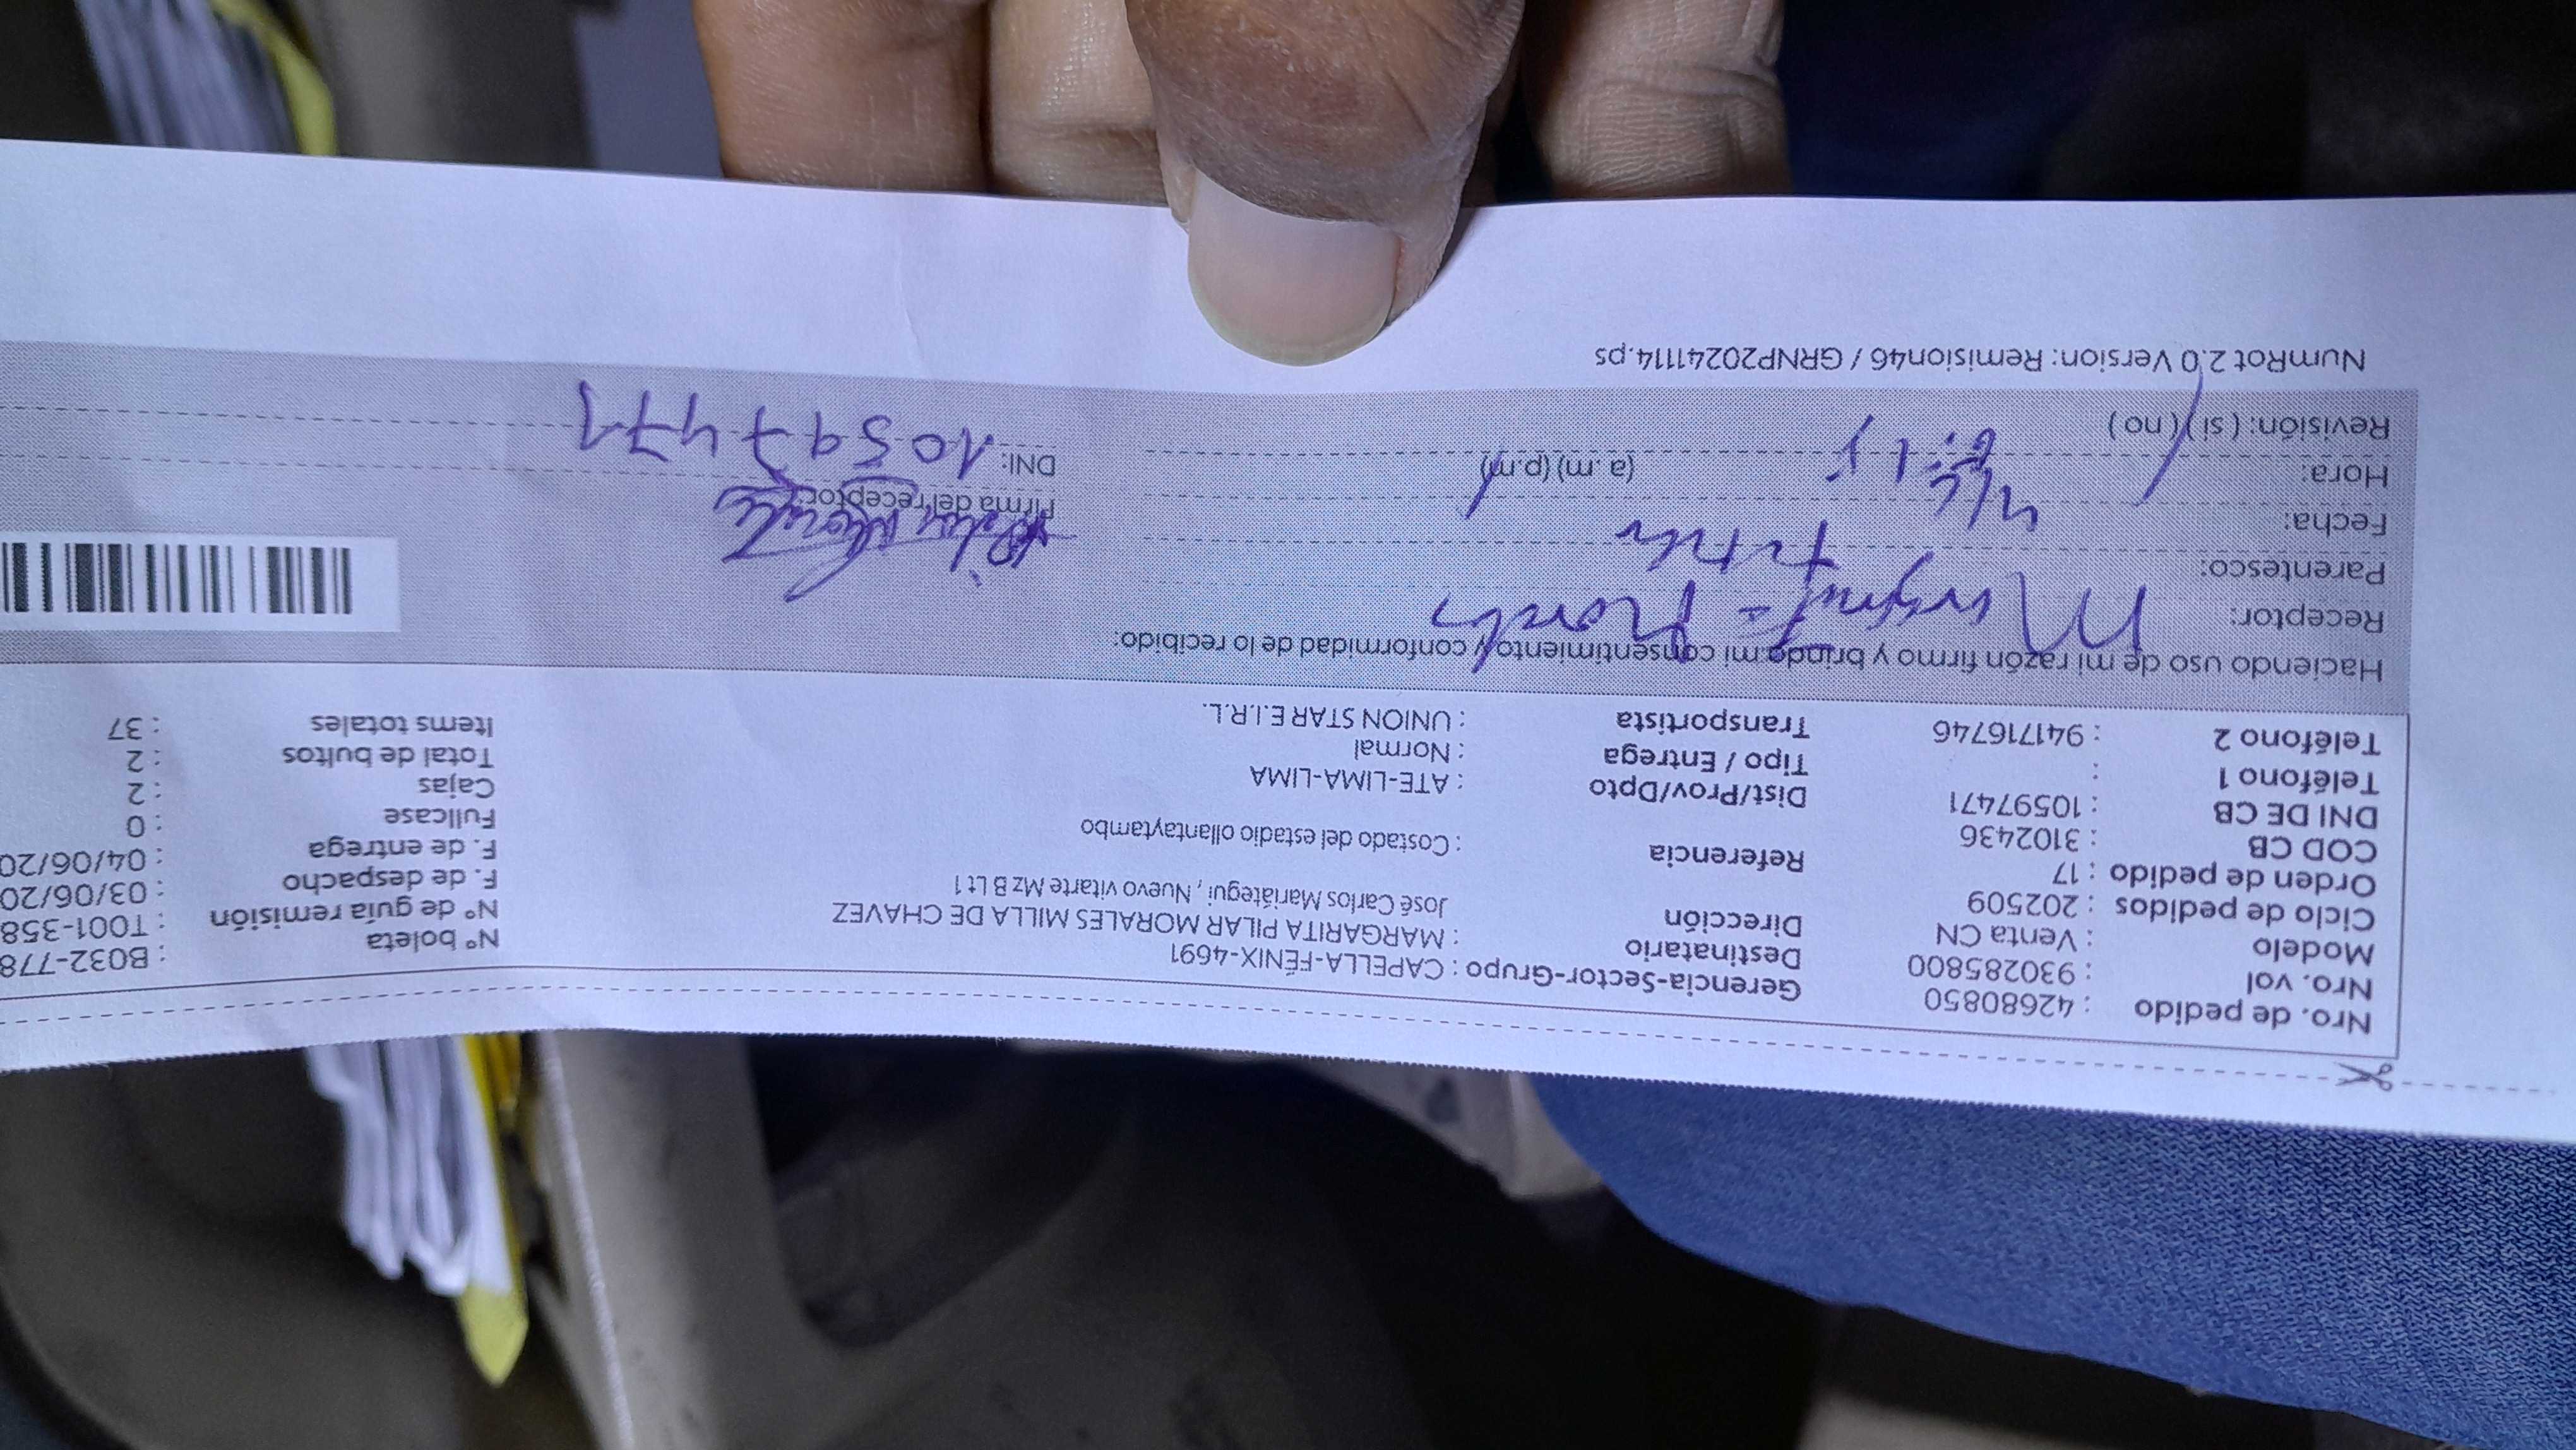 Nro. de pedido : 42680850 Gerencia-Sector-Grupo : CAPELLA-FÉNIX-4691 N° boleta : B032-778
Nro. vol : 930285800 Destinatario : MARGARITA PILAR MORALES MILLA DE CHAVEZ N° de guía remisión : T001-358
Modelo : Venta CN Dirección José Carlos Mariátegui , Nuevo vitarte Mz B Lt 1 F. de despacho : 03/06/20
Ciclo de pedidos : 202509 Referencia : Costado del estadio ollantaytambo F. de entrega : 04/06/20
Orden de pedido : 17 Dist/Prov/Dpto : ATE-LIMA-LIMA Fullcase : 0
COD CB : 3102436 Tipo / Entrega : Normal Cajas : 2
DNI DE CB : 10597471 Transportista : UNION STAR E.I.R.L. Total de bultos : 2
Teléfono 1 : Items totales : 37
Teléfono 2 : 941716746
Haciendo uso de mi razón firmo y brindo mi consentimiento y conformidad de lo recibido:
Receptor: Margarita Morales
Parentesco: titular
Fecha: 4/6 Firma del receptor:
Hora: 6:15 (a.m) (p.m) DNI: 10597471
Revisión: ( si ) ( no )
NumRot 2.0 Version: Remision46 / GRNP20241114.ps